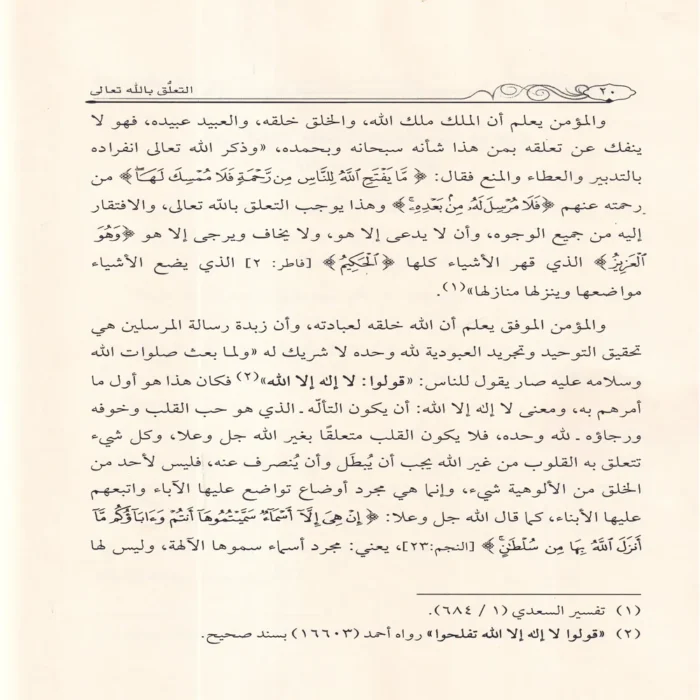 ٢٠ التعلُّق بالله تعالى
والمؤمن يعلم أن الملك ملك الله، والخلق خلقه، والعبيد عبيده، فهو لا
ينفك عن تعلقه بمن هذا شأنه سبحانه وبحمده، «وذكر الله تعالى انفراده
بالتدبير والعطاء والمنع فقال: ﴿ مَّا يَفْتَحِ ٱللَّهُ لِلنَّاسِ مِن رَّحْمَةٍ فَلَا مُمْسِكَ لَهَا ۖ ﴾ من
رحمته عنهم ﴿فَلَا مُرْسِلَ لَهُۥ مِنۢ بَعْدِهِۦ ۚ ﴾ وهذا يوجب التعلق بالله تعالى، والافتقار
إليه من جميع الوجوه، وأن لا يدعى إلا هو، ولا يخاف ويرجى إلا هو ﴿وَهُوَ
ٱلْعَزِيزُ﴾ الذي قهر الأشياء كلها ﴿ٱلْحَكِيمُ﴾ [فاطر: ٢] الذي يضع الأشياء
مواضعها وينزلها منازلها»(١).
والمؤمن الموفق يعلم أن الله خلقه لعبادته، وأن زبدة رسالة المرسلين هي
تحقيق التوحيد وتجريد العبودية لله وحده لا شريك له «ولما بعث صلوات الله
وسلامه عليه صار يقول للناس: «قولوا: لا إله إلا الله»(٢) فكان هذا هو أول ما
أمرهم به، ومعنى لا إله إلا الله: أن يكون التألُّه ـ الذي هو حب القلب وخوفه
ورجاؤه ـ لله وحده، فلا يكون القلب متعلقًا بغير الله جل وعلا، وكل شيء
تتعلق به القلوب من غير الله يجب أن يُبطَل وأن يُنصرف عنه، فليس لأحد من
الخلق من الألوهية شيء، وإنما هي مجرد أوضاع تواضع عليها الآباء واتبعهم
عليها الأبناء، كما قال الله جل وعلا: ﴿ إِنْ هِىَ إِلَّآ أَسْمَآءٌ سَمَّيْتُمُوهَآ أَنتُمْ وَءَابَآؤُكُم مَّآ
أَنزَلَ ٱللَّهُ بِهَا مِن سُلْطَٰنٍ ۚ ﴾ [النجم:٢٣]، يعني: مجرد أسماء سموها الآلهة، وليس لها
(١) تفسير السعدي (١ / ٦٨٤).
(٢) «قولوا لا إله إلا الله تفلحوا» رواه أحمد (١٦٦٠٣) بسند صحيح.